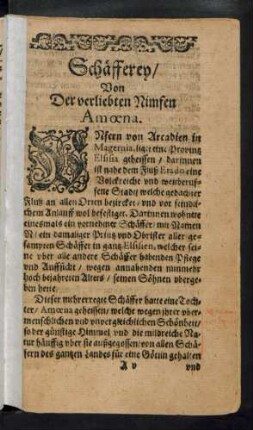 Schäfferey/
Von
Der verliebten Nimfen
Amœna.
Nfern von Arcadien in
Magenia, ligt eine Provintz
Elfisia geheissen / darinnen
ist nahe dem Fluß Eradn eine
Volckreiche und weitberuf-
fene Stadt / welche gedachter
Fluß an allen Orten bezircket / und vor feindli-
chem Anlauff wol befestiget. Darinnen wohnete
einesmals ein vornehmer Schäffer / mit Namen
damaliger Printz und Obrister aller ge-
sampten Schäffer in gantz Elfisien, welcher sei-
ne uber alle andere Schäffer habenden Pflege
und Auffsicht / wegen annahenden nunmehr
hoch bejahreten Alters / seinen Söhnen ubergе-
ben hette.
Dieser mehrerregte Schäffer hatte eine Toch-
ter / Amœna geheissen / welche wegen ihrer uber-
menschlichen und unvergleichlichen Schönheit /
so der günstige Himmel und die mildreiche Na-
tur häuffig uber sie außgegossen / von allen Schä-
fern des gantzen Landes für eine Göttin gehalten
A v und